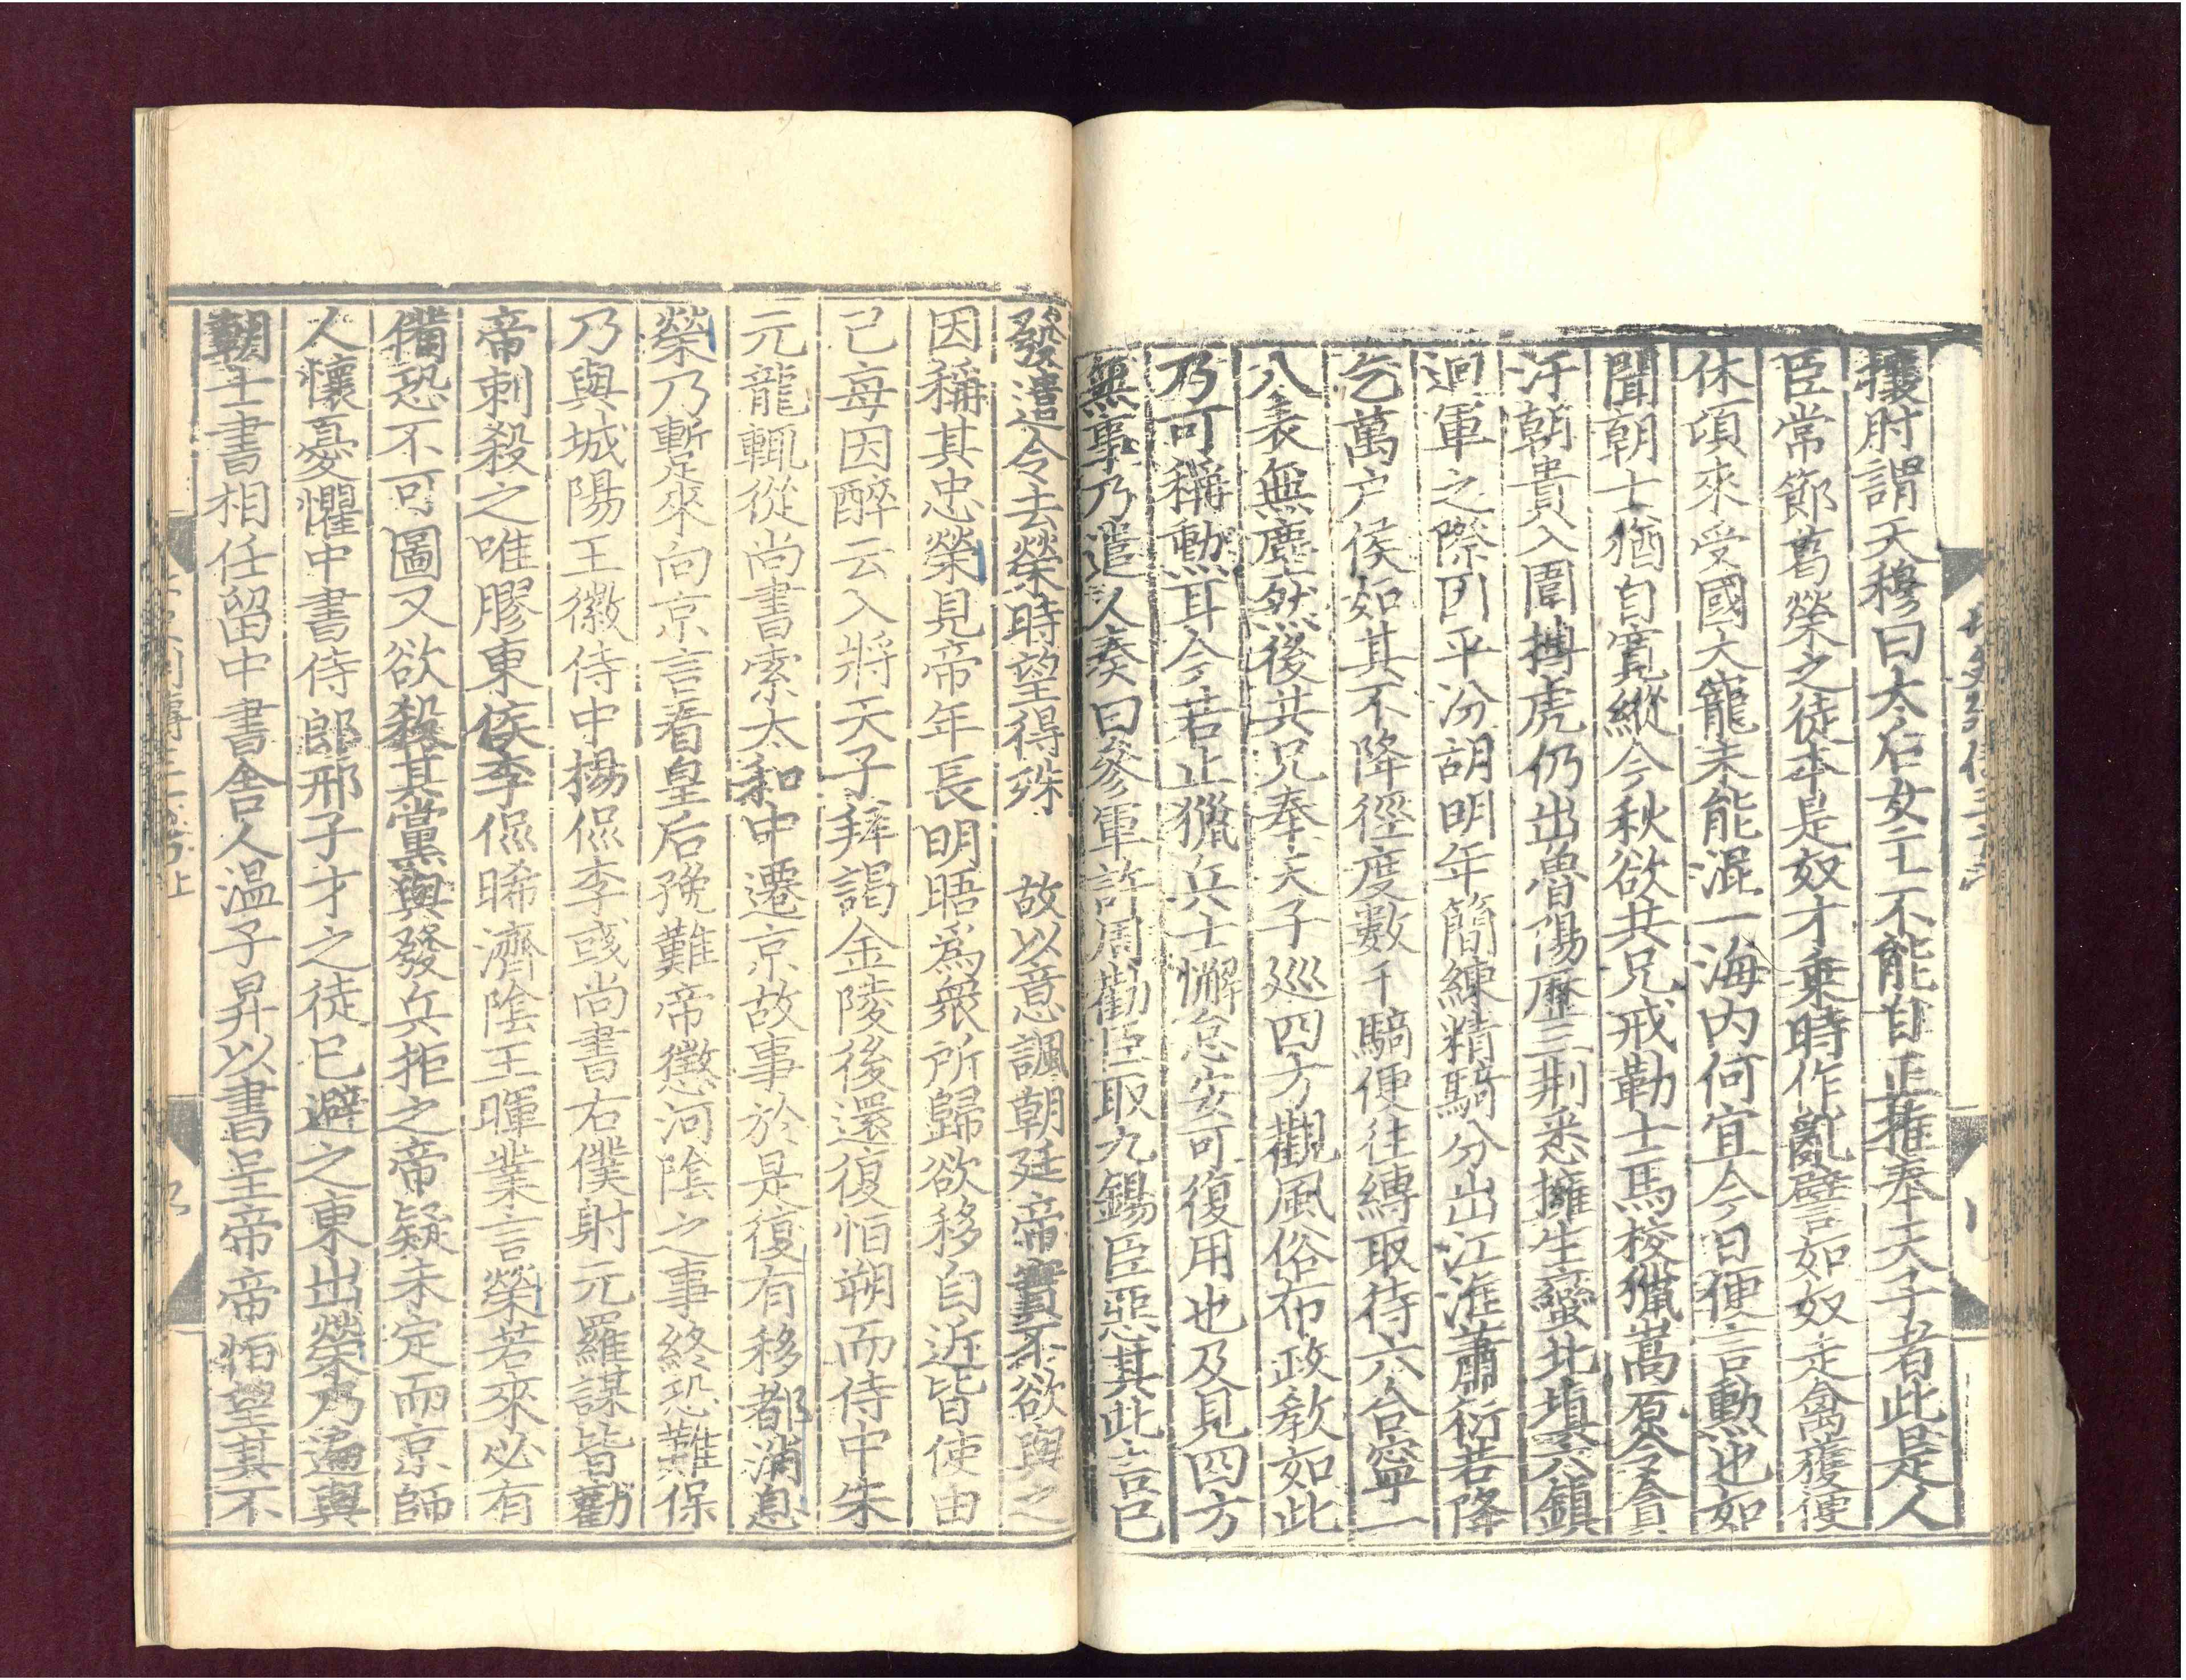 攘肘謂天穆曰太后女主不能自正推奉天子者此是人
臣常節葛榮之徒本是奴才乘時作亂譬如奴走禽獲便
休頃來受國大寵未能混一海内何宜今日便言勲也如
聞朝士猶自寬縱今秋欲共兄戒勒士馬校獵嵩原令貪
汙朝貴入圍搏虎仍出魯陽歷三荆悉擁生蠻北填六鎮
迴軍之際因平汾胡明年簡練精騎分出江淮蕭衍若降
乞萬户侯如其不降徑度數千騎便往縛取待六合寧一
八表無塵然後共兄奉天子巡四方觀風俗布政教如此
乃可稱勲耳今若止獵兵士懈怠安可復用也及見四方
無事乃遣人奏曰參軍許周勸臣取九錫臣惡其此言已
發遣令去榮時望得殊 故以意諷朝廷帝實不欲與之
因稱其忠榮見帝年長明晤爲衆所歸欲移自近皆使由
己每因醉云入將天子拜謁金陵後還復怕朔而侍中朱
元龍輒從尚書索太和中遷京故事於是復有移都消息
榮乃暫足來向京言看皇后㝃難帝懲河陰之事終恐難保
乃與城陽王徽侍中楊侃李彧尚書右僕射元羅謀皆勸
帝刺殺之唯膠東侯李侃晞濟陰王暉業言榮若來必有
備恐不可圖又欲殺其黨與發兵拒之帝疑未定而京師
人懷憂懼中書侍郎邢子才之徒已避之東出榮乃遍與
朝士書相任留中書舍人温子昇以書呈帝帝怕望其不